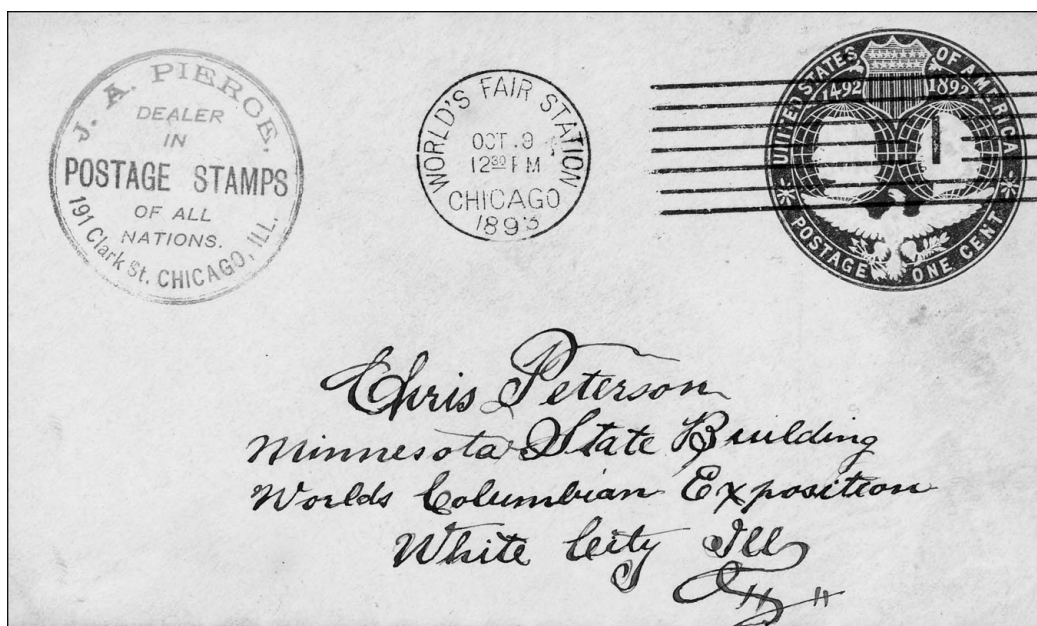 J. A. PIERCE,
DEALER
IN
POSTAGE STAMPS
OF ALL
NATIONS.
191 Clark St. CHICAGO, ILL.
WORLD'S FAIR STATION
OCT 9
12 30 PM
CHICAGO
1893
UNITED STATES OF AMERICA
1492 1892
POSTAGE ONE CENT
Chris Peterson
Minnesota State Building
Worlds Columbian Exposition
White City Ill